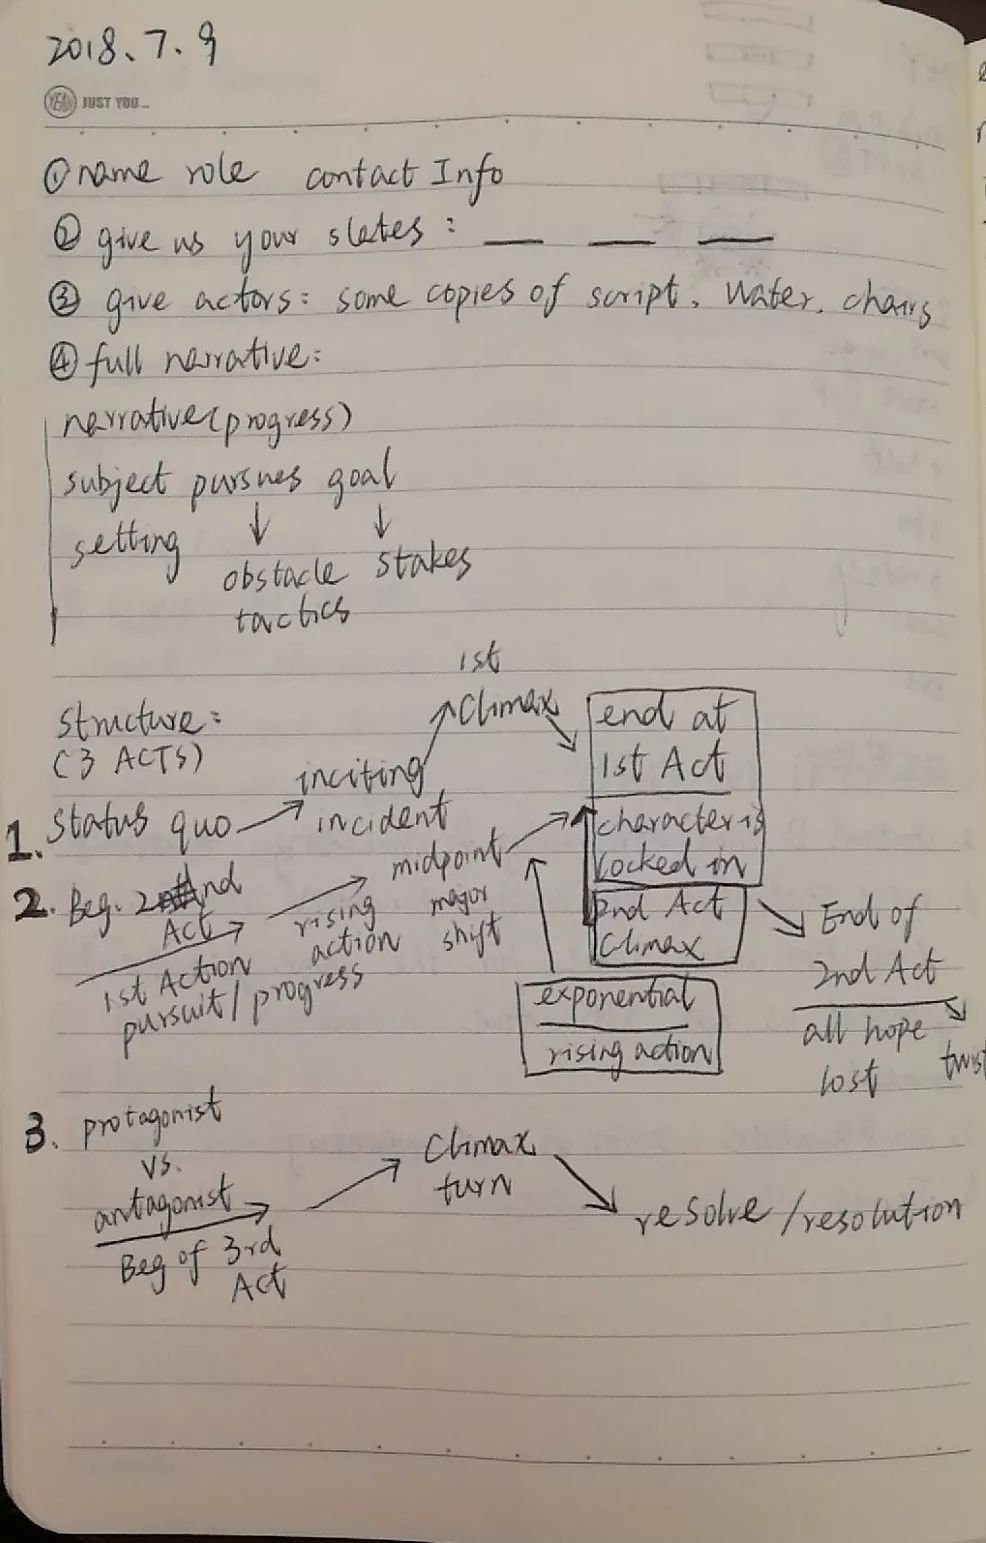 2018.7.9
YEAH JUST YOU...
① name role contact Info
② give us your slates: __ __ __
③ give actors: some copies of script. Water. chairs
④ full narrative:
narrative (progress)
subject pursues goal
setting
↓ ↓
obstacle stakes
tactics
Structure:
(3 ACTS)
1. Status quo → inciting
incident
↗ 1st
Climax ↘
end at
1st Act
character is
locked in
2. Beg. 2nd
Act
1st Action
pursuit/progress
→ rising
action
→ midpoint
major
shift
↗
2nd Act
Climax
exponential
rising action
↘ End of
2nd Act
all hope
lost
↘ twist
3. protagonist
vs.
antagonist →
Beg of 3rd
Act
↗ Climax
turn
↘ resolve/resolution